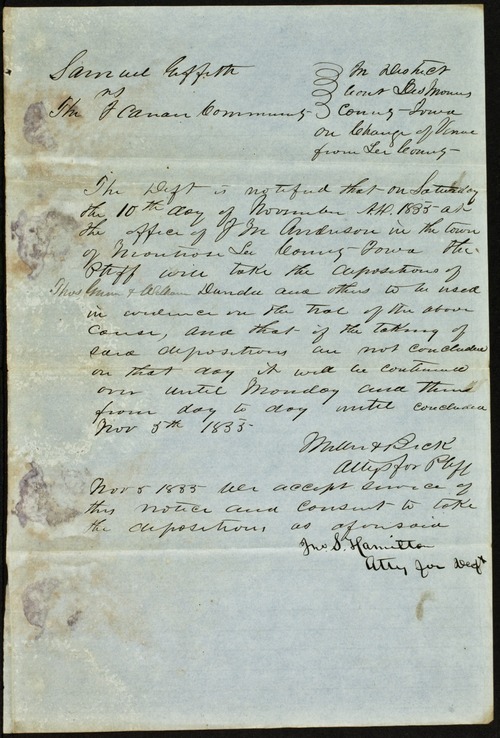 Samuel Giffith
vs
The Icarian Community
In District
Court Des Moines
County Iowa
on Change of Venue
from Lee County
The Deft is notified that on Saturday
the 10th day of November AD. 1855 at
the office of J M Anderson in the town
of Montrose Lee County Iowa the
Pltff will take the depositions of
Thos & William Dundee and others to be used
in evidence on the trial of the above
cause, and that if the taking of
said depositions are not concluded
on that day it will be continued
over until Monday and thence
from day to day until concluded
Nov 5th 1855
Miller & Beck
Attys for Plff
Nov 5 1855 We accept service of
this notice and consent to take
the depositions as aforesaid
Jno S. Hamilton
Atty for Deft